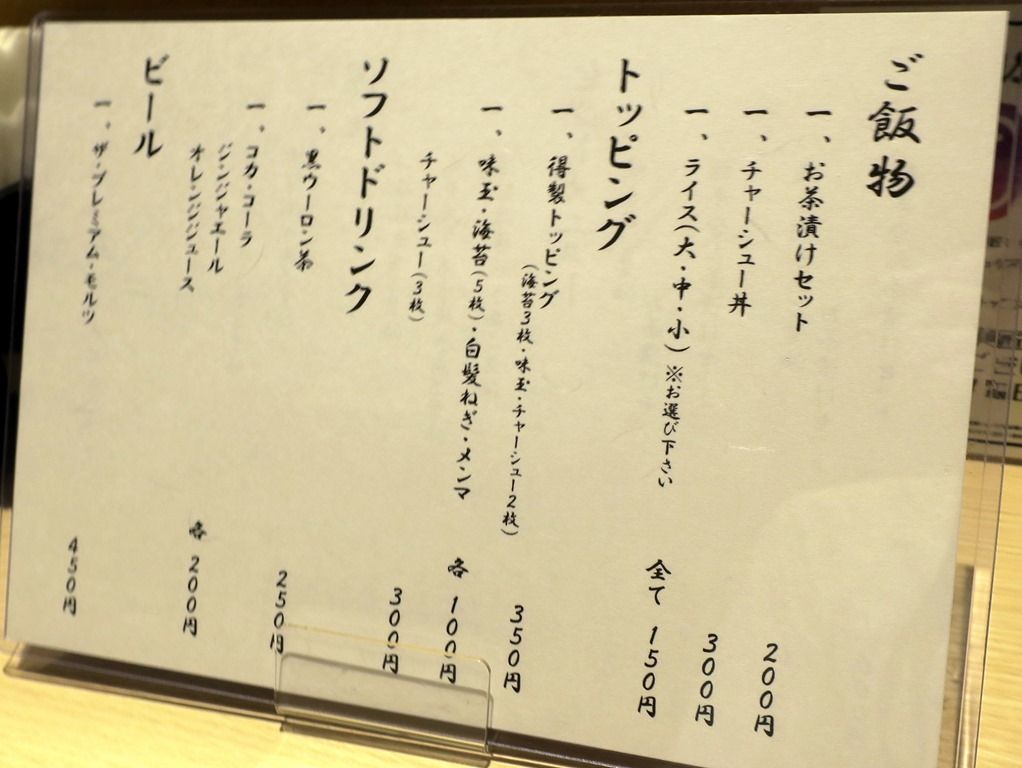 ご飯物
一、お茶漬けセット 200円
一、チャーシュー丼 300円
一、ライス(大・中・小)※お選び下さい 全て 150円
トッピング
一、得製トッピング 350円
(海苔3枚・味玉・チャーシュー2枚)
一、味玉・海苔(5枚)・白髪ねぎ・メンマ 各 100円
チャーシュー(3枚) 300円
ソフトドリンク
一、黒ウーロン茶 250円
一、コカ・コーラ
ジンジャエール
オレンジジュース 各 200円
ビール
一、ザ・プレミアム・モルツ 450円